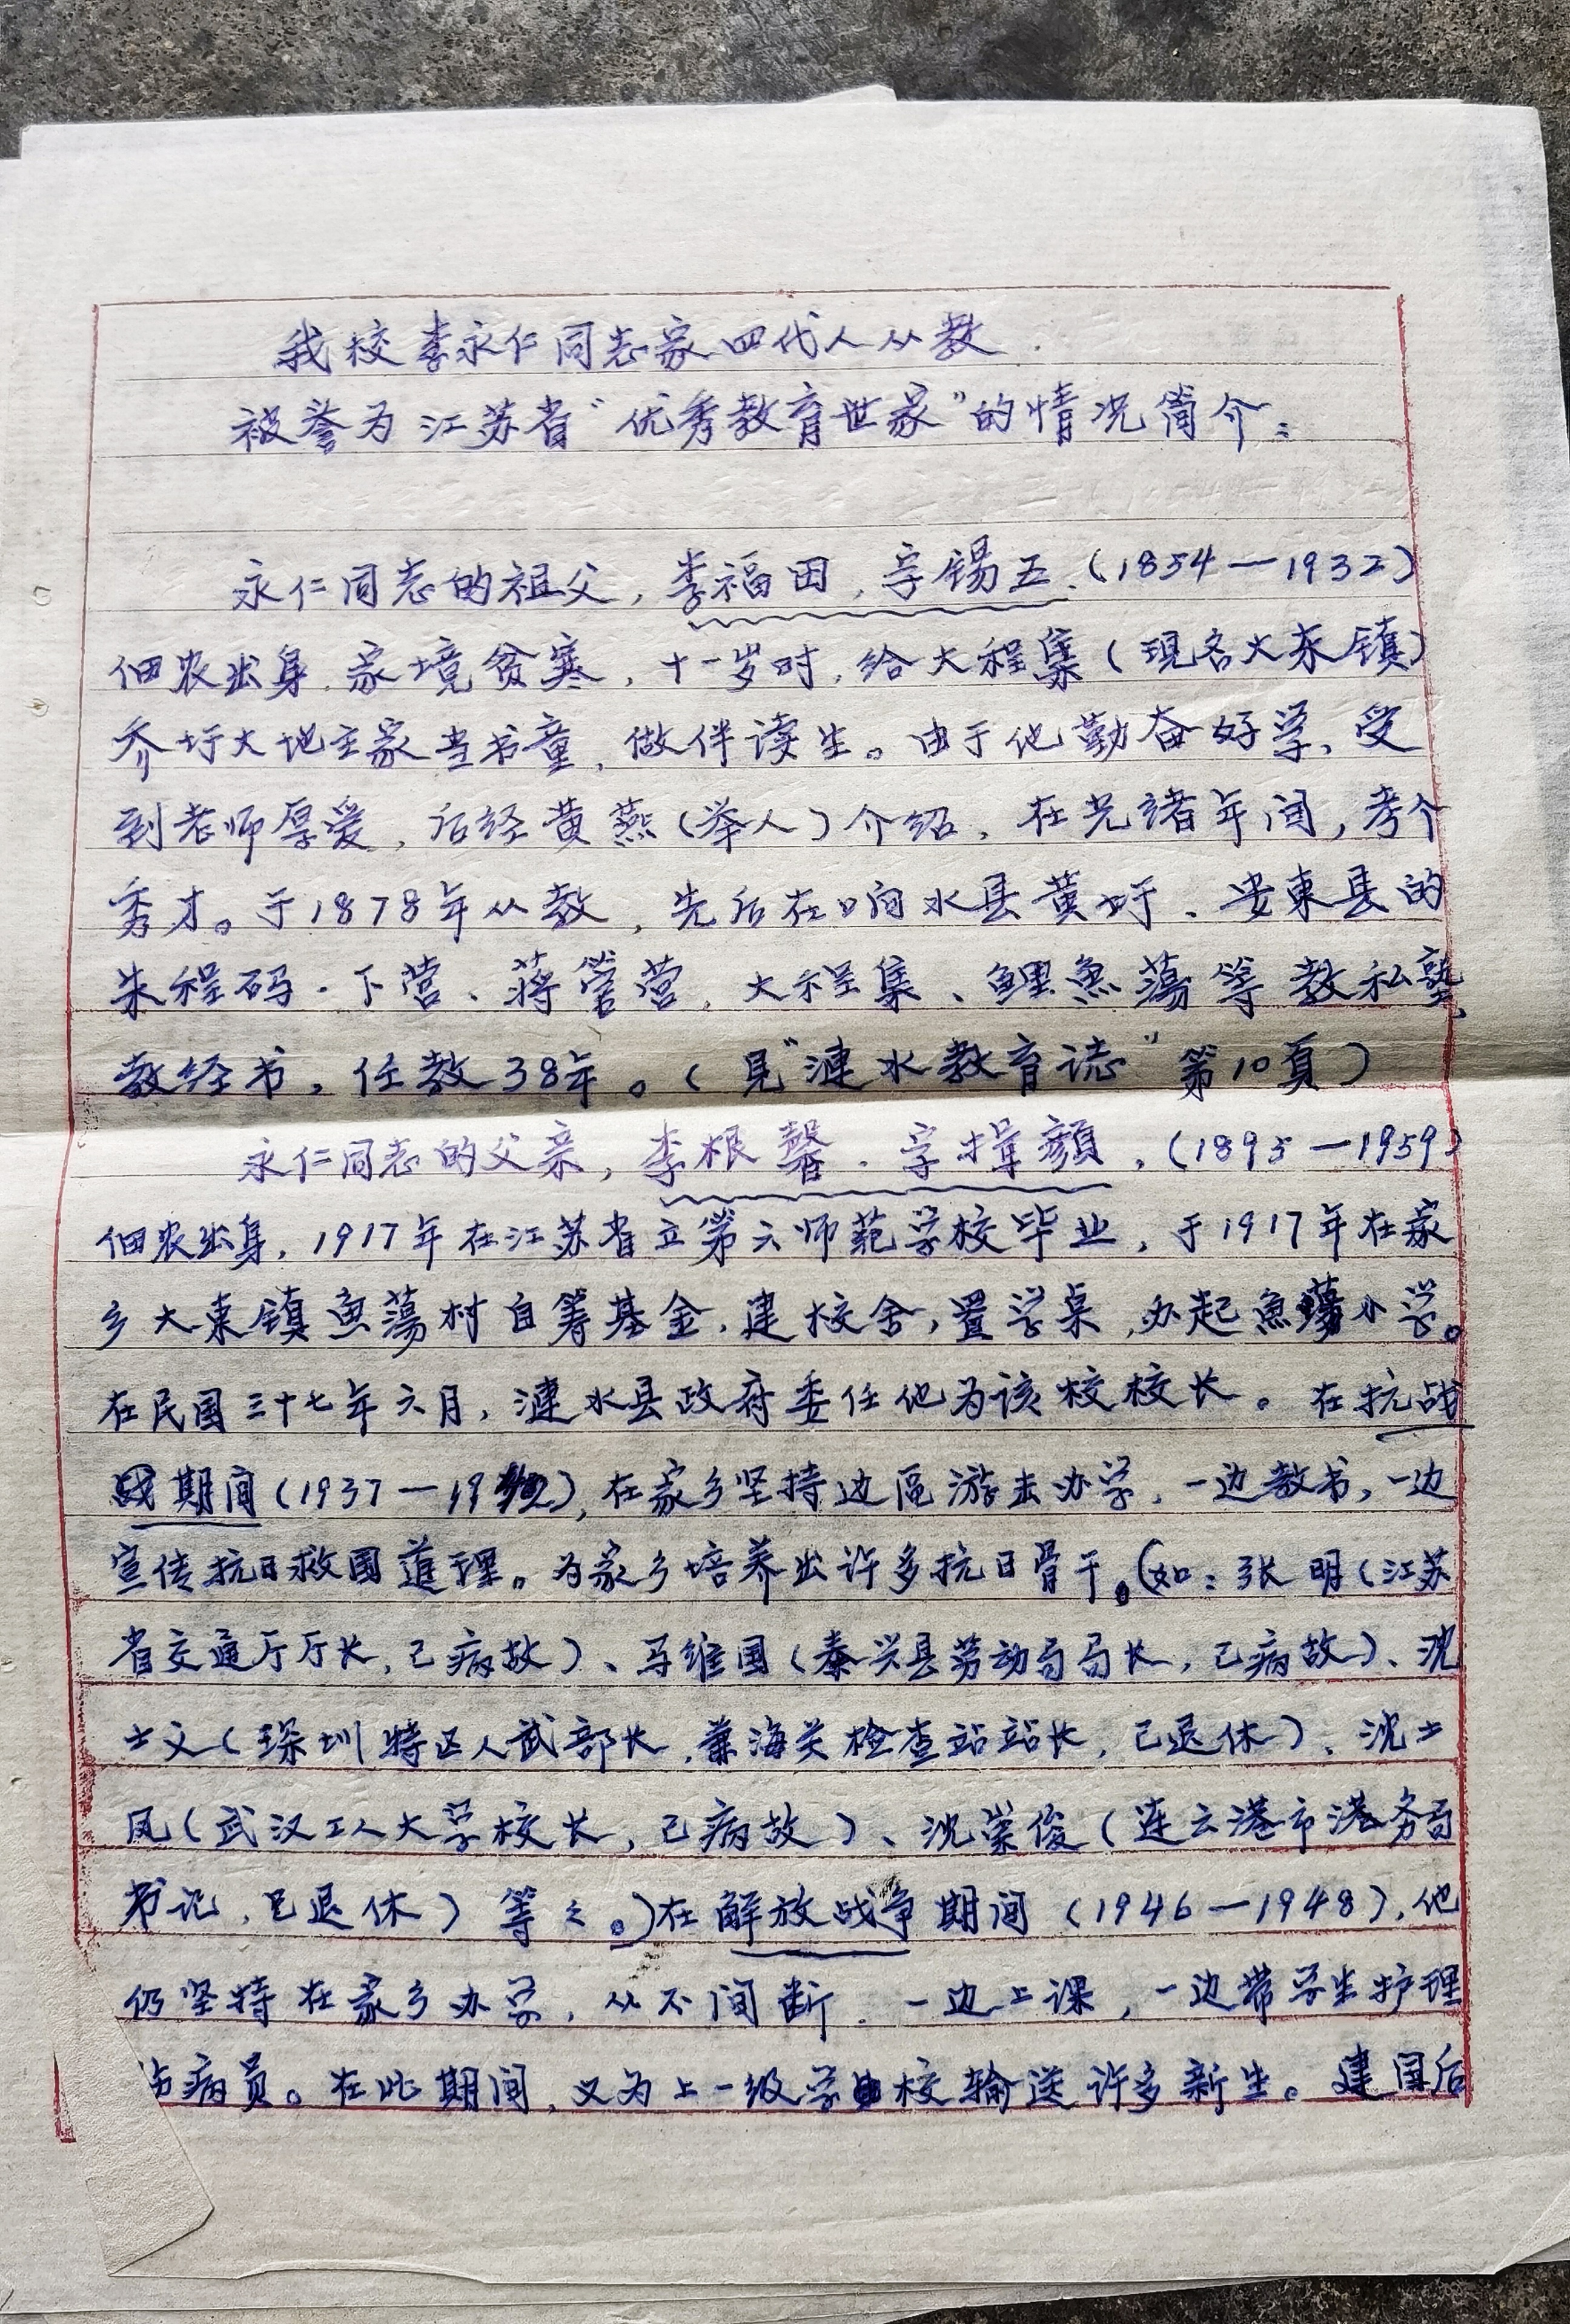 我校李永仁同志家四代人从教
被誉为江苏省“优秀教育世家”的情况简介：
永仁同志的祖父，李福田，字锡五.（1854—1932）
佃农出身，家境贫寒，十一岁时，给大程集（現名大东镇）
乔圩大地主家当书童，做伴读生。由于他勤奋好学、受
到老师厚爱，后经黄燕（举人）介绍，在光緒年间，考个
秀才。于1878年从教，先后在响水县黄圩、安東县的
朱程码、下营、蒋營营、大程集、鲤魚蕩等教私塾，
教经书，任教38年。（見“漣水教育誌”第10頁）
永仁同志的父亲，李根馨．字揖顏，（1895—1959）
佃农出身，1917年在江苏省立第六师范学校毕业，于1917年在家
乡大東镇魚蕩村自筹基金，建校舍，置学桌，办起魚蕩小学。
在民国三十七年六月，漣水县政府委任他为该校校长。在抗战
期间（1937—19），在家乡坚持边區游击办学，一边教书，一边
宣传抗日救国道理。为家乡培养出许多抗日骨干。（如：张明（江苏
省交通厅厅长，已病故）、马维国（泰兴县劳动局局长，已病故）、沈
士义（深圳特区人武部长，兼海关检查站站长，已退休）、沈士
凤（武汉工人大学校长，已病故）、沈崇俊（连云港市港务局
书记，已退休）等之。）在解放战争期间（1946—1948），他
仍坚持在家乡办学，从不间断．一边上课，一边带学生护理
伤病员。在此期间，又为上一级学校输送许多新生。建国后